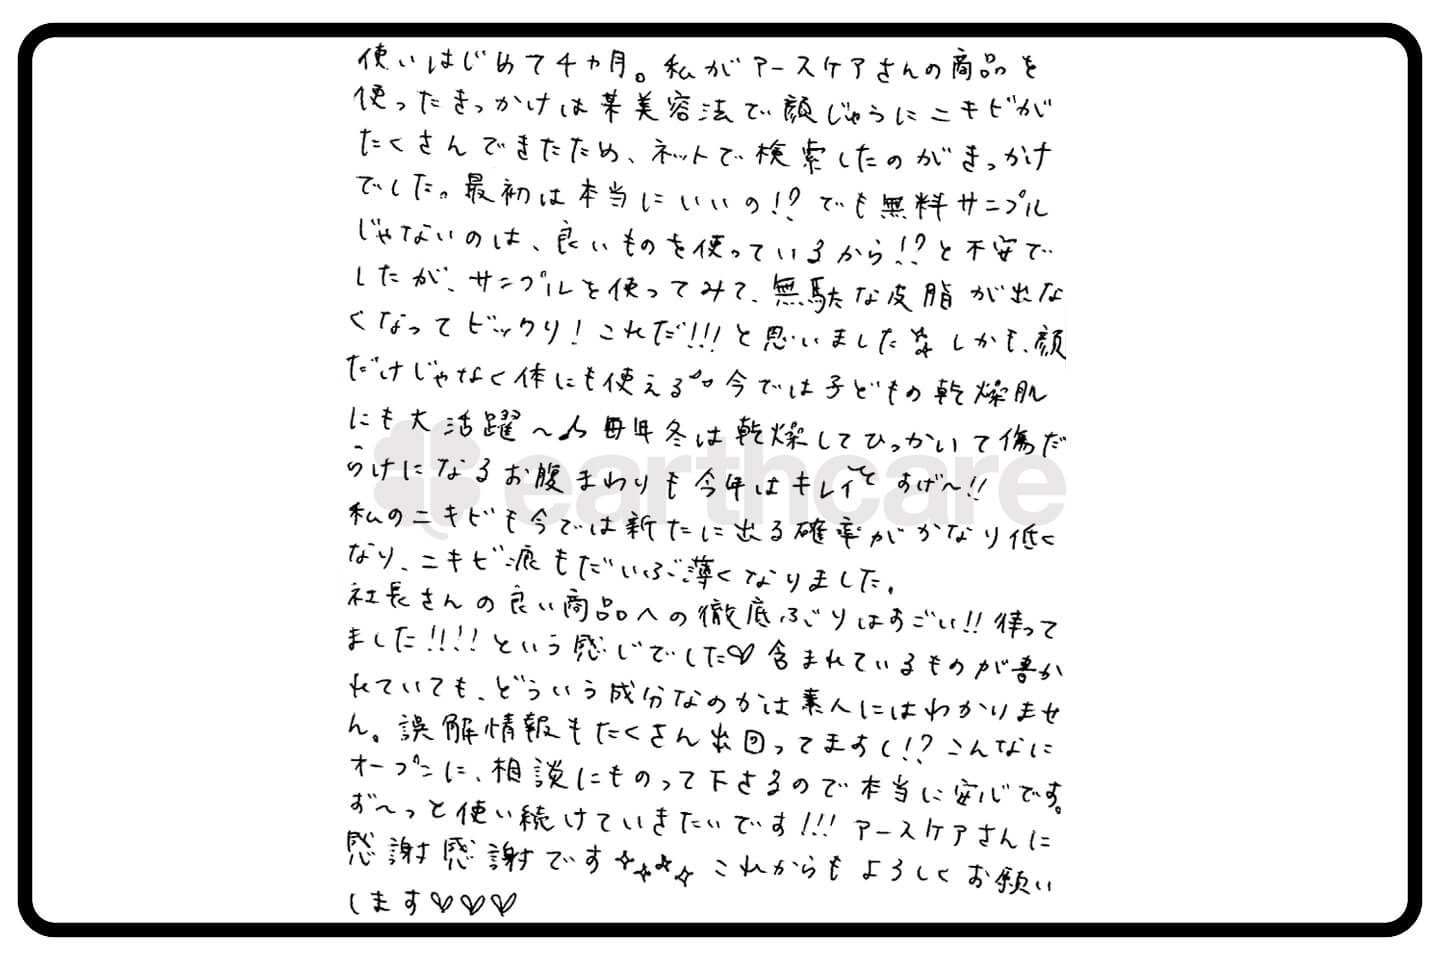 使いはじめて4ヵ月。私がアースケアさんの商品を
使ったきっかけは某美容法で顔じゅうにニキビが
たくさんできたため、ネットで検索したのがきっかけ
でした。最初は本当にいいの!?でも無料サンプル
じゃないのは、良いものを使っているから!?と不安で
したが、サンプルを使ってみて、無駄な皮脂が出な
くなってビックリ!これだ!!!と思いました しかも、顔
だけじゃなく体にも使える 今では子どもの乾燥肌
にも大活躍〜♪毎年冬は乾燥してひっかいて傷だ
らけになるお腹まわりも今年はキレイ すげ〜!!
私のニキビも今では新たに出る確率がかなり低く
なり、ニキビ痕もだいぶ薄くなりました。
社長さんの良い商品への徹底ぶりはすごい!!待って
ました!!!!という感じでした♡含まれているものが書か
れていても、どういう成分なのかは素人にはわかりませ
ん。誤解情報もたくさん出回ってますし!?こんなに
オープンに、相談にものって下さるので本当に安心です。
ず〜っと使い続けていきたいです!!!アースケアさんに
感謝感謝です✧✧✧✧これからもよろしくお願い
します♡♡♡
earthcare